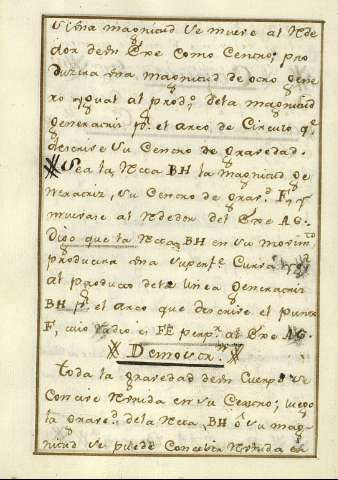 Si una magnitud se mueve al Rede
dor de un Exe como Centro; pro
duzira una magnitud de otro gene
ro ygual al prod.º dela magnitud
generatriz pr. el arco de Circulo q.e
descrive su Centro de gravedad.
Sea la Recta BH la magnitud ge
neratriz, su Centro de grav.d F, y
muevase al Rededor del Exe AG.
Digo que la Recta BH en su movim.to
producira una superf.e Curva
al producto dela Linea generatriz
BH pr. el arco que descrive el punto
F, cuio radio es FE perp.r al Exe AG.
Demostr.n
Toda la gravedad de un Cuerpo se
Concive Reunida en su Centro; luego
la graved.d dela Recta BH ô su mag
nitud se puede Concebir Reunida en